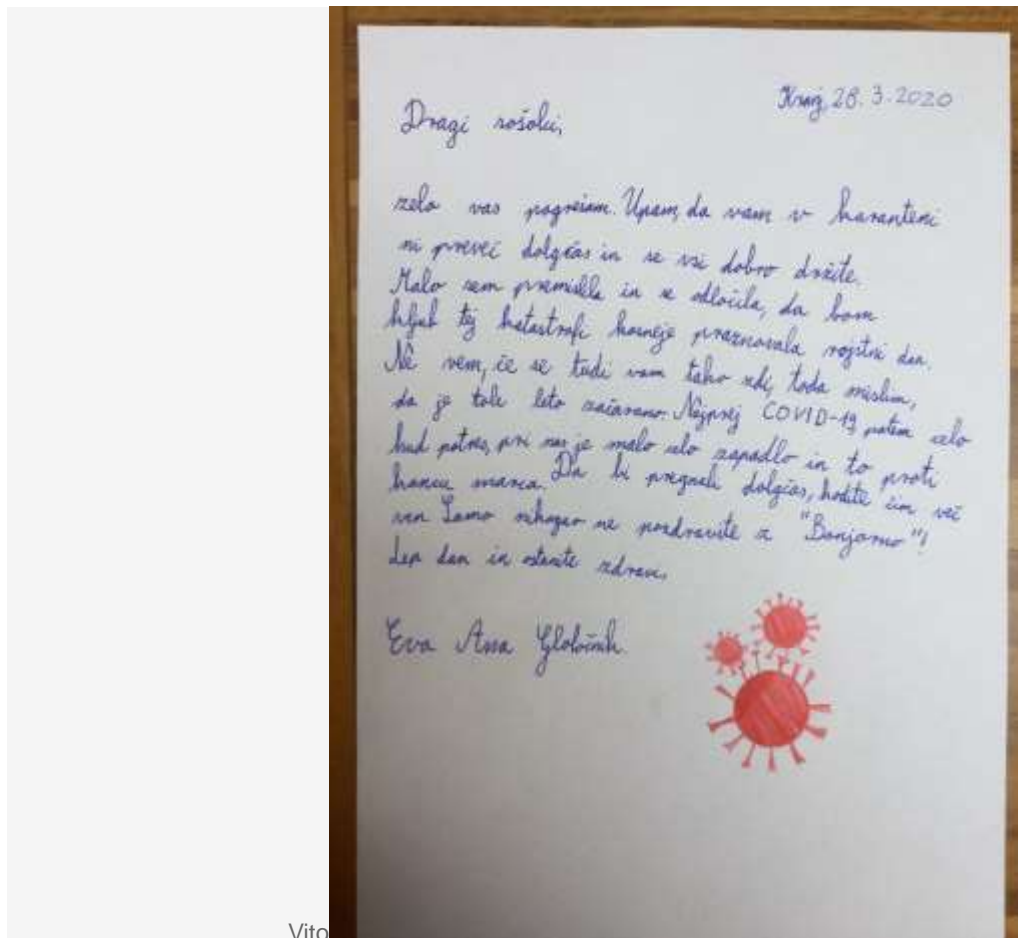 Kranj, 28. 3. 2020
Dragi sošolci,
zelo vas pogrešam. Upam, da vam v karanteni
ni preveč dolgčas in se vsi dobro držite.
Malo sem premislila in se odločila, da bom
kljub tej katastrofi kasneje praznovala rojstni dan.
Ne vem, če se tudi vam tako zdi, toda mislim,
da je tole leto začarano. Najprej COVID-19, potem celo
hud potres, pri nas je malo celo zapadlo in to proti
koncu marca. Da bi pregnali dolgčas, hodite čim več
ven. Samo nikogar ne pozdravite z "Bonjorno"!
Lep dan in ostanite zdravi,
Eva Ana Globočnik
Vito